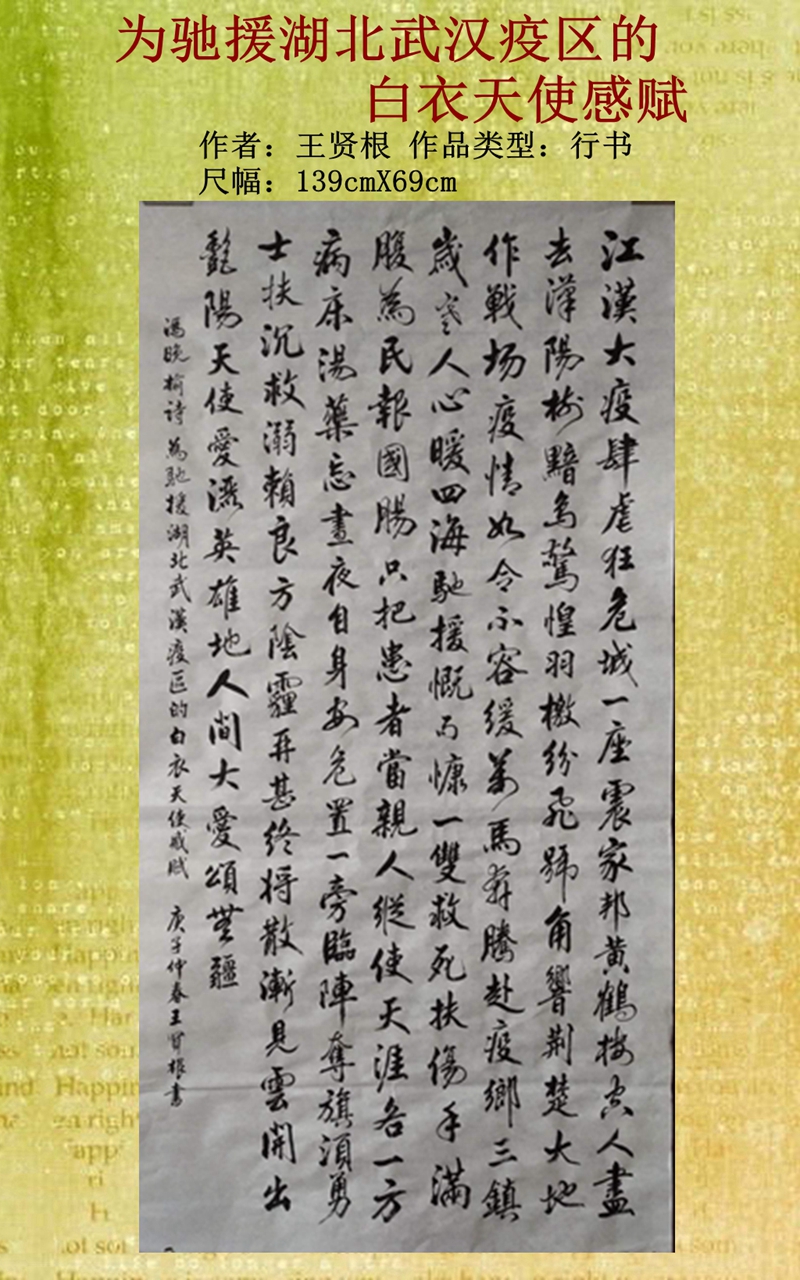 为驰援湖北武汉疫区的
白衣天使感赋
作者：王贤根 作品类型：行书
尺幅：139cmX69cm
江漢大疫肆虐狂危城一座震家邦黄鶴楼空人盡
去漢陽樹黯鳥驚惶羽檄紛飛號角響荆楚大地
作戰场疫情如令不容缓萬馬奔騰赴疫鄉三鎮
歲寒人心暖四海馳援慨而慷一雙救死扶傷手滿
腹為民報國腸只把患者當親人縱使天涯各一方
病床湯藥忘晝夜自身安危置一旁臨陣奪旗須勇
士扶沉救溺賴良方陰霾再甚终将散漸見雲開出
艶陽天使愛滿英雄地人間大愛頌無疆
馮晓榆诗為馳援湖北武漢疫區的白衣天使感賦 庚子仲春王賢根書